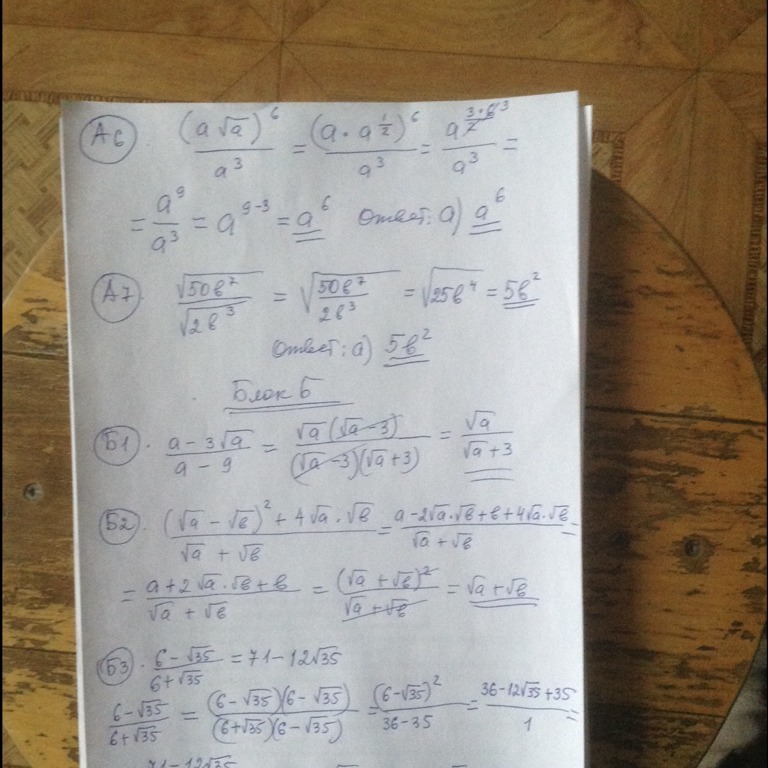 А6 (a√a)^6 / a^3 = (a · a^(1/2))^6 / a^3 = a^(3·6/2) ^3 / a^3 =
= a^9 / a^3 = a^(9-3) = a^6 Ответ: а) a^6
А7. √(50в^7) / √(2в^3) = √(50в^7 / 2в^3) = √(25в^4) = 5в^2
Ответ: а) 5в^2
Блок Б
Б1. (a - 3√a) / (a - 9) = √a (√a - 3) / (√a - 3)(√a + 3) = √a / (√a + 3)
Б2. ((√a - √в)^2 + 4√a · √в) / (√a + √в) = (a - 2√a·√в + в + 4√a·√в) / (√a + √в) =
= (a + 2√a·√в + в) / (√a + √в) = (√a + √в)^2 / (√a + √в) = √a + √в
Б3. (6 - √35) / (6 + √35) = 71 - 12√35
(6 - √35) / (6 + √35) = (6 - √35)(6 - √35) / (6 + √35)(6 - √35) = (6 - √35)^2 / (36 - 35) = (36 - 12√35 + 35) / 1 =
71 - 12√35